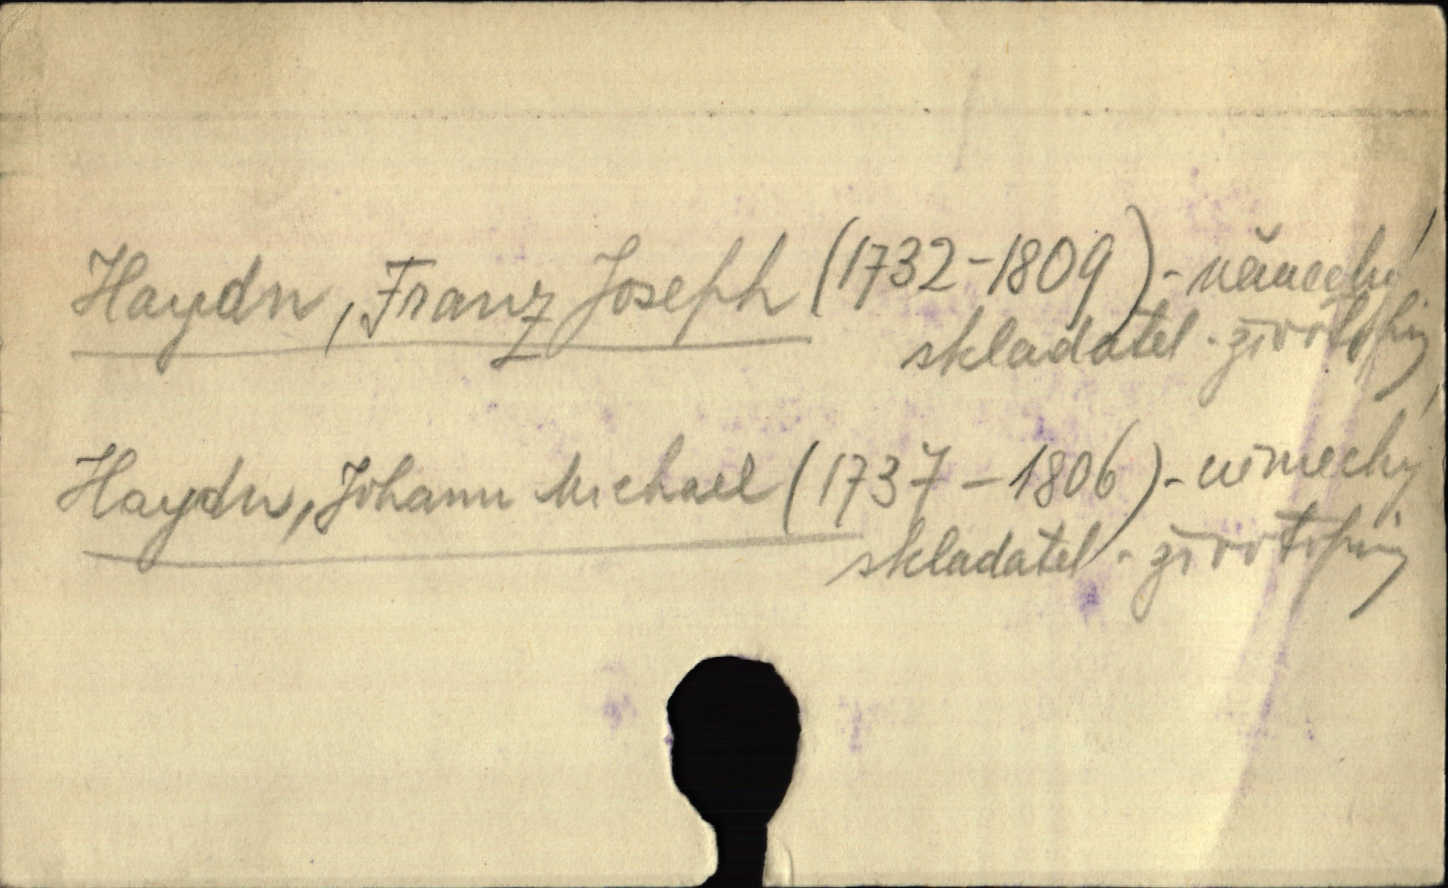 Haydn, Franz Joseph (1732-1809) - německý
skladatel - životopisy
Haydn, Johann Michael (1737-1806) - německý
skladatel - životopisy